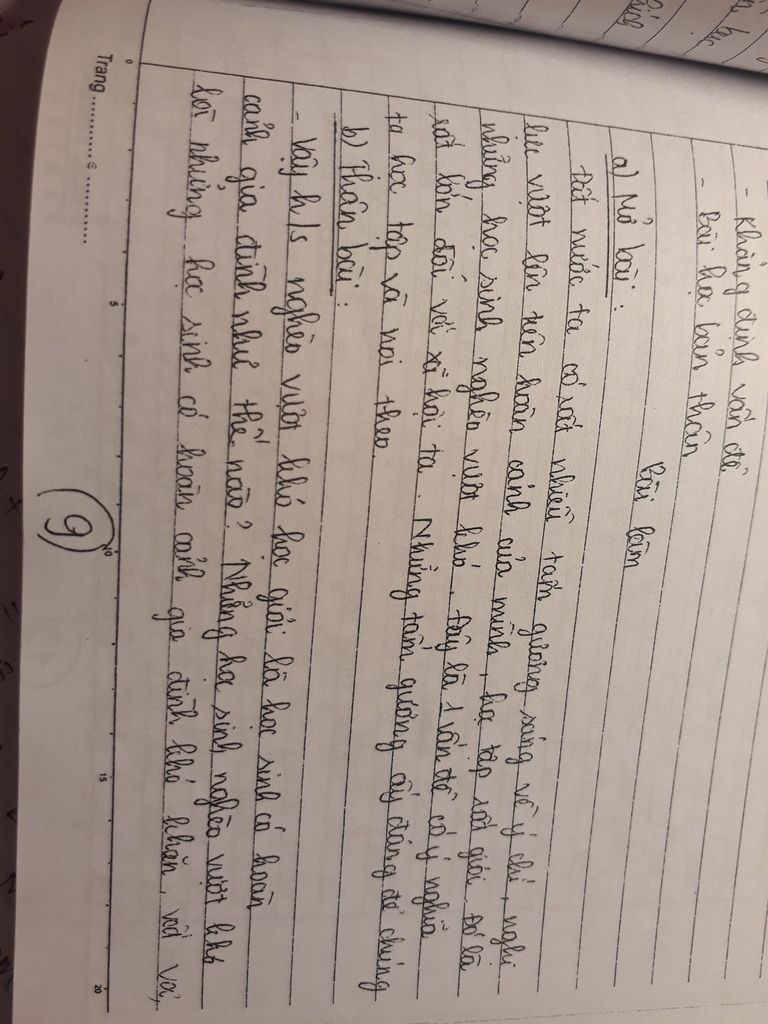 - Khẳng định vấn đề
- Bài học bản thân
Bài làm
a) Mở bài:
Đất nước ta có rất nhiều tấm gương sáng về ý chí, nghị
lực vượt lên trên hoàn cảnh của mình, học tập rất giỏi. Đó là
những học sinh nghèo vượt khó. Đây là 1 vấn đề có ý nghĩa
rất lớn đối với xã hội ta. Những tấm gương ấy đáng để chúng
ta học tập và noi theo.
b) Thân bài:
- Vậy h/s nghèo vượt khó học giỏi là học sinh có hoàn
cảnh gia đình như thế nào? Những học sinh nghèo vượt khó
là những học sinh có hoàn cảnh gia đình khó khăn, vất vả,
Trang
0
5
10
15
20
9